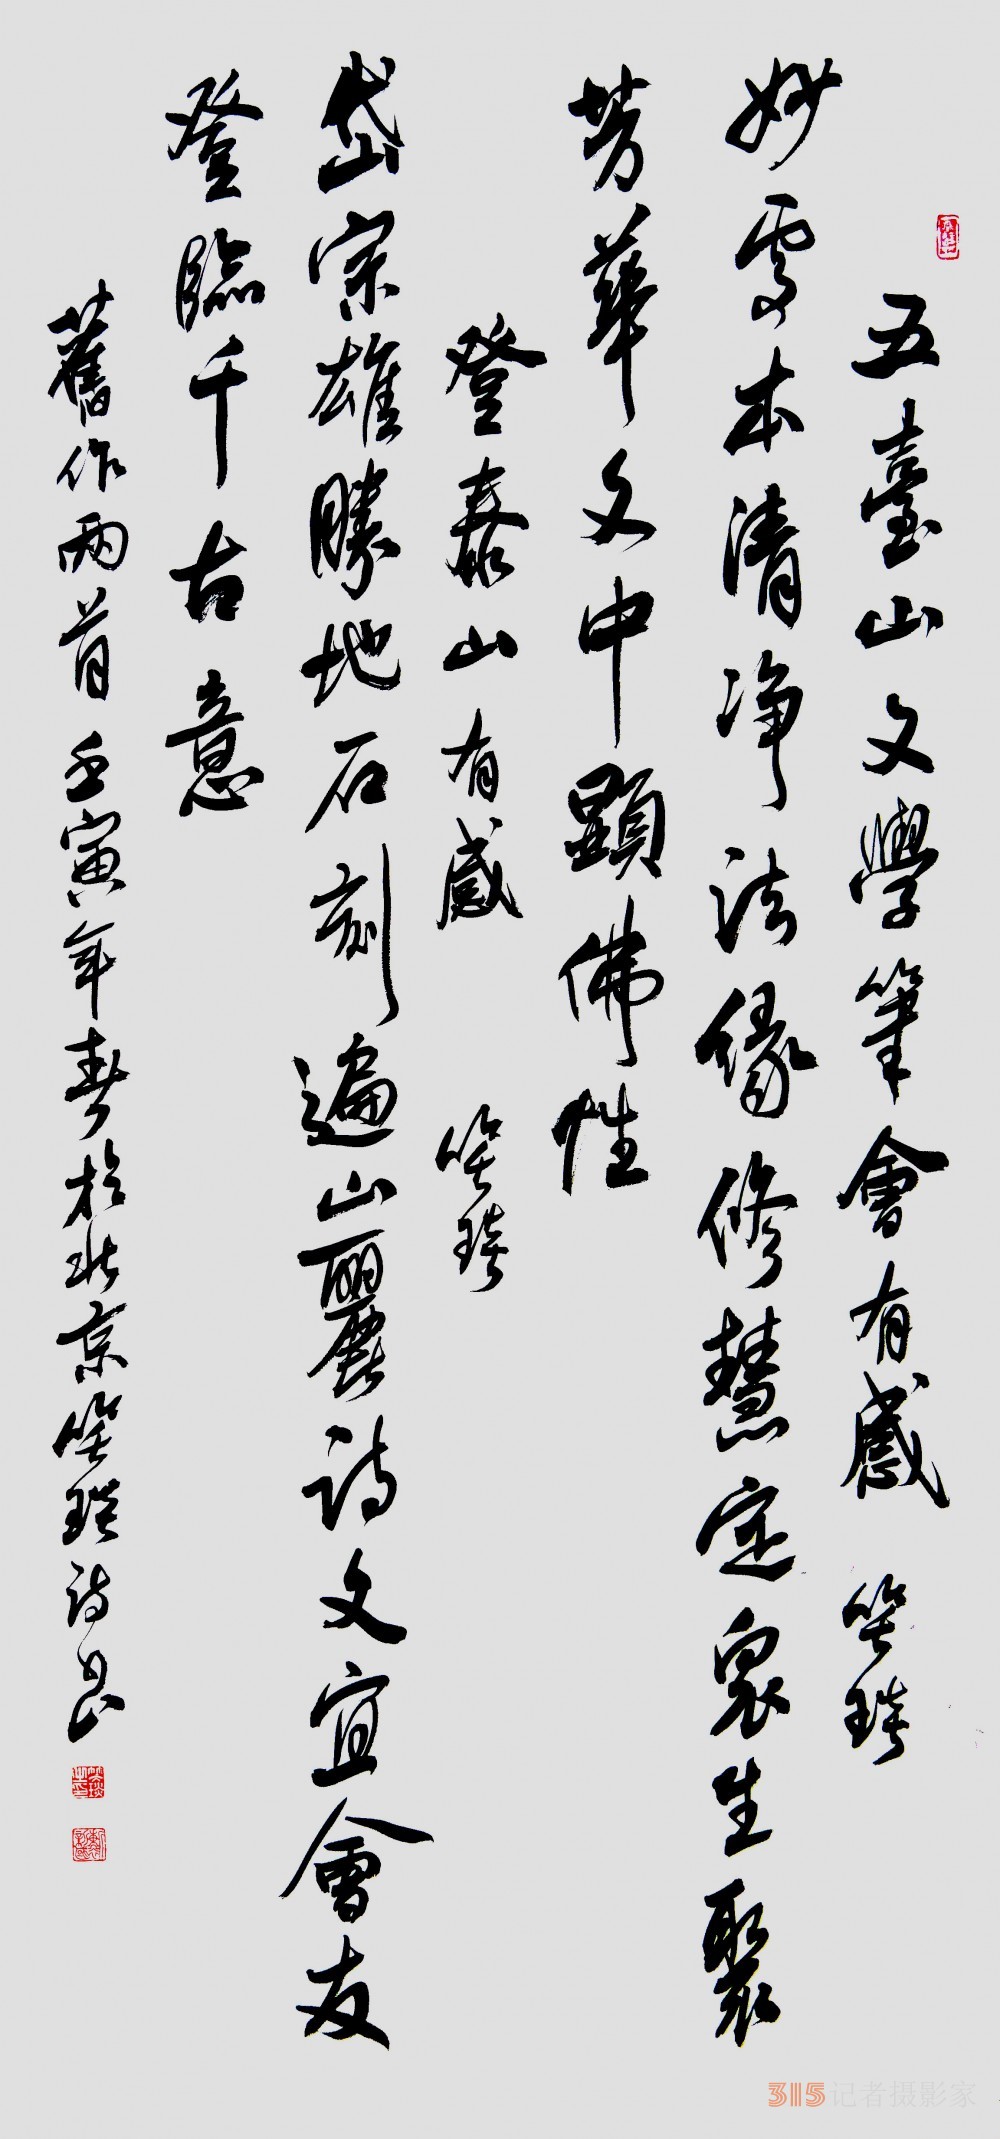 五臺山文學筆會有感 笑琰
妙處本清净法緣修慧定眾生聚
芳華文中顯佛性
登泰山有感 笑琰
岱宗雄勝地石刻遍山麗诗文宜會友
登臨千古意
舊作兩首壬寅年春於北京笑琰诗书
315记者摄影家